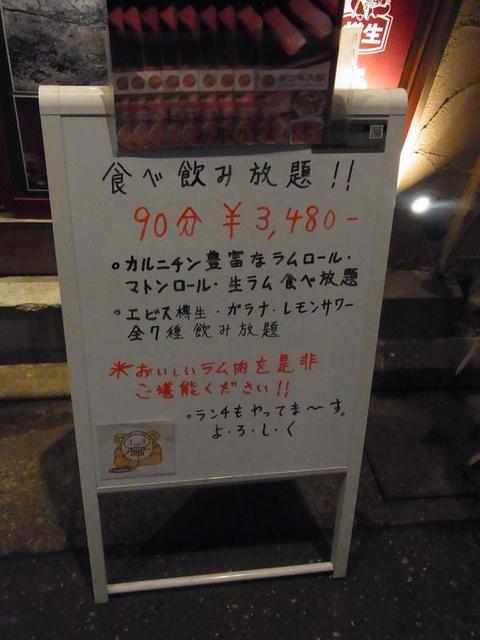 樽生
食べ飲み放題!!
90分 ¥3,480-
◦カルニチン豊富なラムロール・
マトンロール・生ラム食べ放題
◦エビス樽生・ガラナ・レモンサワー
全7種飲み放題
※おいしいラム肉を是非
ご堪能ください!!
◦ランチもやってま〜す。
よ・ろ・し・く